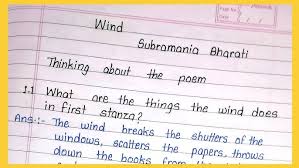 Page No.
Date
Wind
Subramania Bharati
Thinking about the poem
1.1 What are the things the wind does
in first stanza?
Ans:- The wind breaks the shutters of the
windows, scatters the papers, throws
down the books from